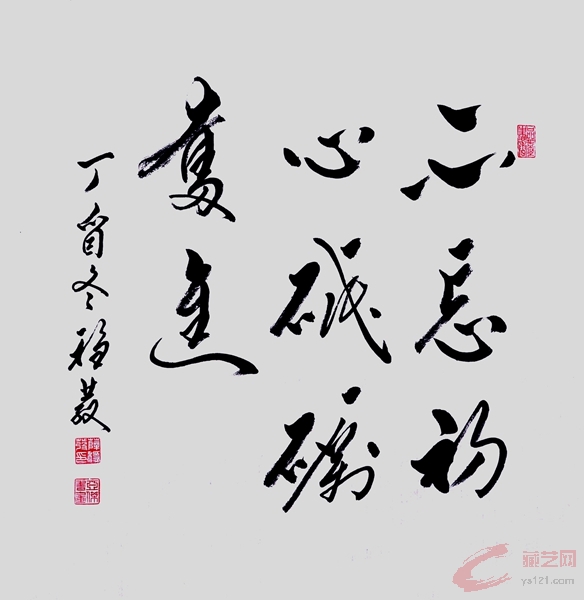 不忘初
心砥砺
奮進
丁酉冬福
藏艺网
ys121.com